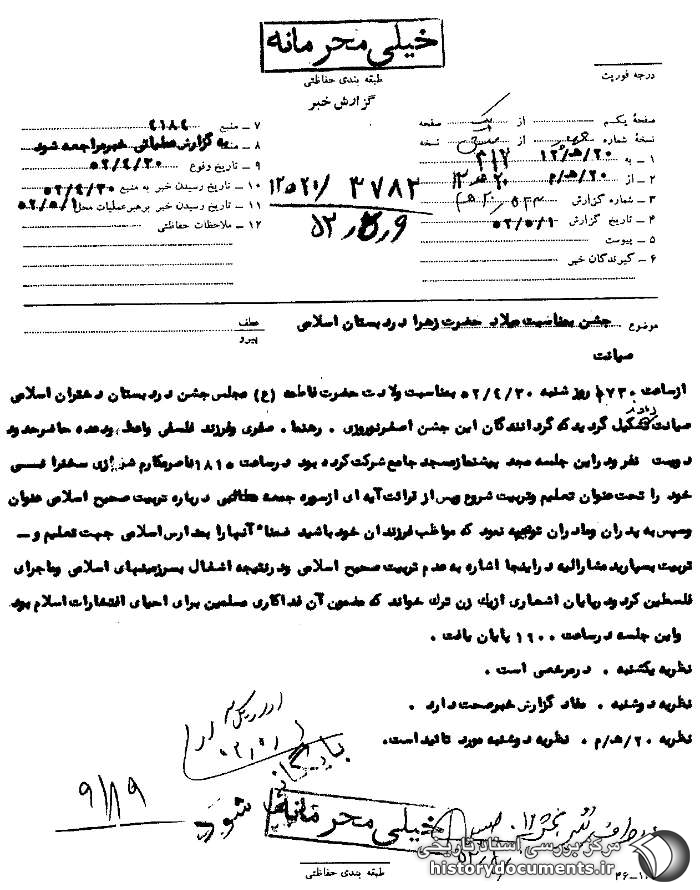 خیلی محرمانه
طبقه بندی حفاظتی
گزارش خبر
درجه فوریت
صفحهٔ یکم از یک صفحه
نسخهٔ شماره از نسخه
۱ ـ به ۲۰/ه‍/۱۲ ۳۱۲
۲ ـ از ۲۰/ه‍/م
۳ ـ شماره گزارش
۴ ـ تاریخ گزارش ۵۲/۵/۱
۵ ـ پیوست
۶ ـ گیرندگان خبر
۷ ـ منبع ۴۱۸۴
۸ ـ منشأ به گزارش عملیاتی خبر مراجعه شود
۹ ـ تاریخ وقوع ۵۲/۴/۳۰
۱۰ ـ تاریخ رسیدن خبر به منبع ۵۲/۴/۳۰
۱۱ ـ تاریخ رسیدن خبر برهبر عملیات محل ۵۲/۵/۱
۱۲ ـ ملاحظات حفاظتی
۳۷۸۲
موضوع جشن بمناسبت میلاد حضرت زهرا در دبستان اسلامی
صیانت
عطف
پیرو
از ساعت ۱۷۳۰ روز شنبه ۵۲/۴/۳۰ بمناسبت ولادت حضرت فاطمه (ع) مجلس جشن در دبستان دختران اسلامی
صیانت تشکیل گردید که گردانندگان این جشن اصغر نوروزی . رهنما . صفری و فرزند فلسفی واعظ بودند عده حاضر حدود
دویست نفر و در این جلسه مجد پیشنماز مسجد جامع شرکت کرده بود در ساعت ۱۸۱۵ ناصر مکارم شیرازی سخنرانی
خود را تحت عنوان تعلیم و تربیت شروع و پس از قرائت آیه ای از سوره جمعه مطالبی درباره تربیت صحیح اسلامی عنوان
و سپس به پدران و مادران توصیه نمود که مواظب فرزندان خود باشید ضمناً آنها را بمدارس اسلامی جهت تعلیم و ـ
تربیت بسپارید مشارالیه در اینجا اشاره به عدم تربیت صحیح اسلامی و در نتیجه اشغال سرزمینهای اسلامی و ماجرای
فلسطین کرد و در پایان اشعاری از یک زن ترک خواند که مضمون آن فداکاری مسلمین برای احیای افتخارات اسلام بود
و این جلسه در ساعت ۱۹۰۰ پایان یافت .
نظریه یکشنبه . در مرخصی است .
نظریه دوشنبه . مفاد گزارش خبر صحت دارد .
نظریه ۲۰/ه‍/م . نظریه دوشنبه مورد تائید است.
بایگانی شود
۹/۸۹
خیلی محرمانه
طبقه بندی حفاظتی
مرکز بررسی اسناد تاریخی
historydocuments.ir